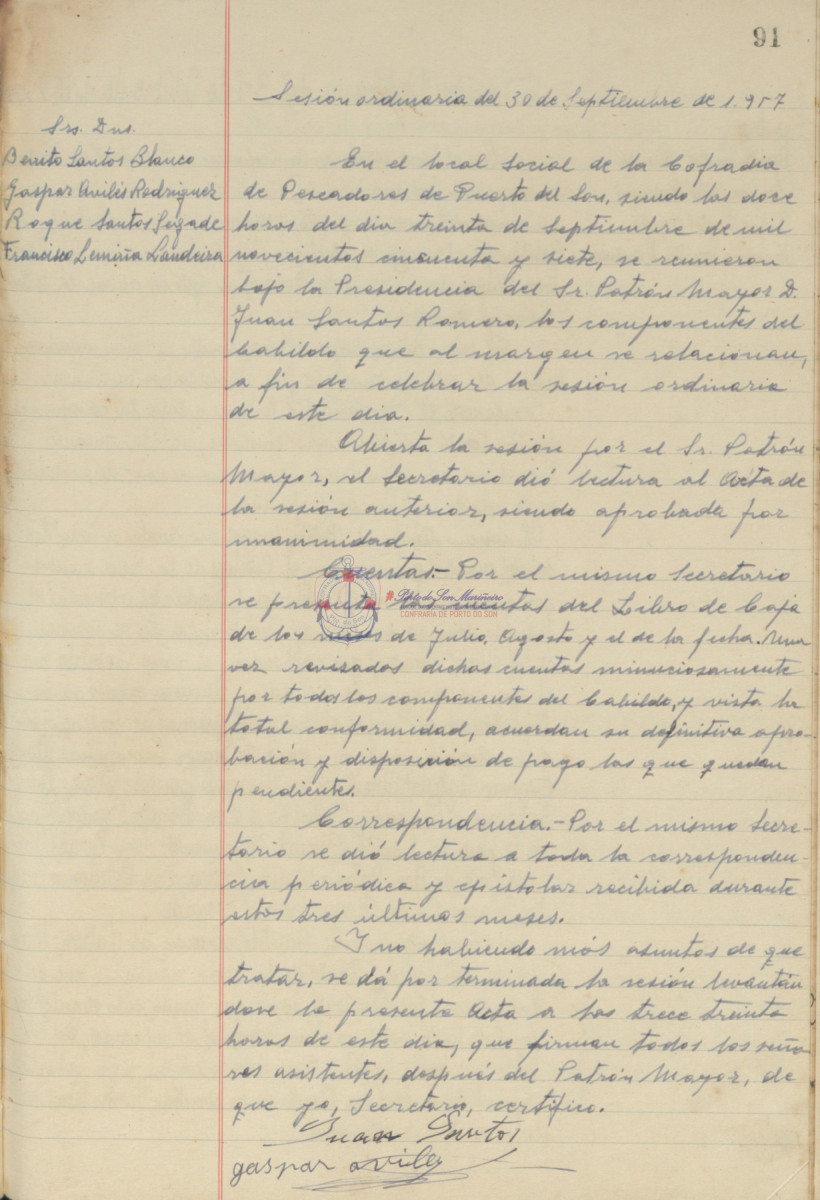 91
Sesión ordinaria del 30 de Septiembre de 1.957
Srs. Dns.
Benito Santos Blanco
Gaspar Avilés Rodriguez
Roque Santos Segade
Francisco Lemiña Landeira
En el local social de la Cofradia
de Pescadores de Puerto del Son, siendo las doce
horas del dia treinta de Septiembre de mil
novecientos cincuenta y siete, se reunieron
bajo la Presidencia del Sr. Patrón Mayor D.
Juan Santos Romero, los componentes del
Cabildo que al margen se relacionan,
a fin de celebrar la sesión ordinaria
de este dia.
Abierta la sesión por el Sr. Patrón
Mayor, el Secretario dió lectura al Acta de
la sesión anterior, siendo aprobada por
unanimidad.
Cuentas.- Por el mismo Secretario
se presenta las cuentas del Libro de Caja
de los meses de Julio, Agosto y el de la fecha. Una
vez revisadas dichas cuentas minuciosamente
por todos los componentes del Cabildo, y vista la
total conformidad, acuerdan su definitiva apro-
bación y disposición de pago las que quedan
pendientes.
Correspondencia.- Por el mismo Secre-
tario se dió lectura a toda la corresponden-
cia periódica y epistolar recibida durante
estos tres últimos meses.
Y no habiendo más asuntos de que
tratar, se dá por terminada la sesión levantán
dose la presente Acta a las trece treinta
horas de este dia, que firman todos los seño-
res asistentes, después del Patrón Mayor, de
que yo, Secretario, certifico.
Juan Santos
gaspar aviles
Porto do Son Mariñeiro
CONFRARIA DE PORTO DO SON